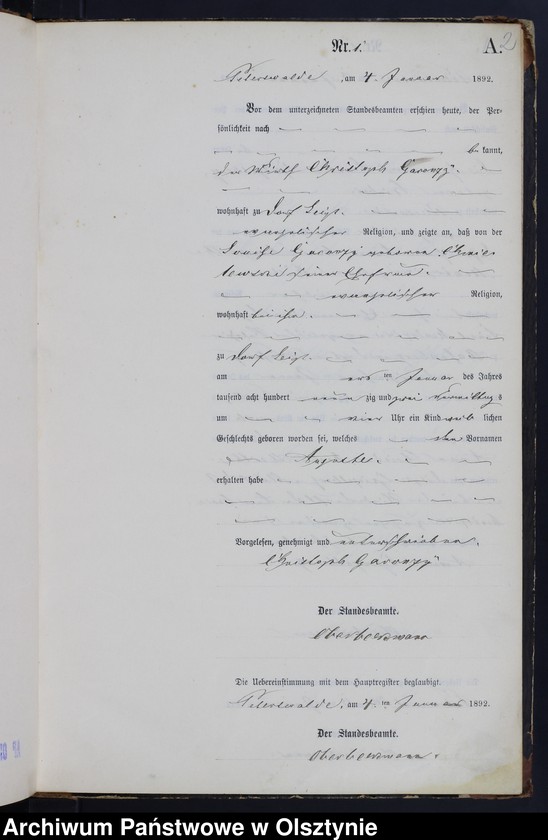 Nr. 1.
A. 2
Peterswalde, am 4 Januar 1892.
Vor dem unterzeichneten Standesbeamten erschien heute, der Per-
sönlichkeit nach
be kannt,
der Wirth Christoph
wohnhaft zu Dorf
evangelischer Religion, und zeigte an, daß von der
Louise geborene
seiner Ehefrau
evangelischer Religion,
wohnhaft bei ihm
zu Dorf
am ersten Januar des Jahres
tausend acht hundert neun zig und zwei Vormittags
um vier Uhr ein Kind weib lichen
Geschlechts geboren worden sei, welches den Vornamen
Auguste
erhalten habe
Vorgelesen, genehmigt und unterschrieben.
Christoph
Der Standesbeamte.
Die Uebereinstimmung mit dem Hauptregister beglaubigt.
Peterswalde, am 4 ten Januar 1892.
Der Standesbeamte.
Archiwum Państwowe w Olsztynie